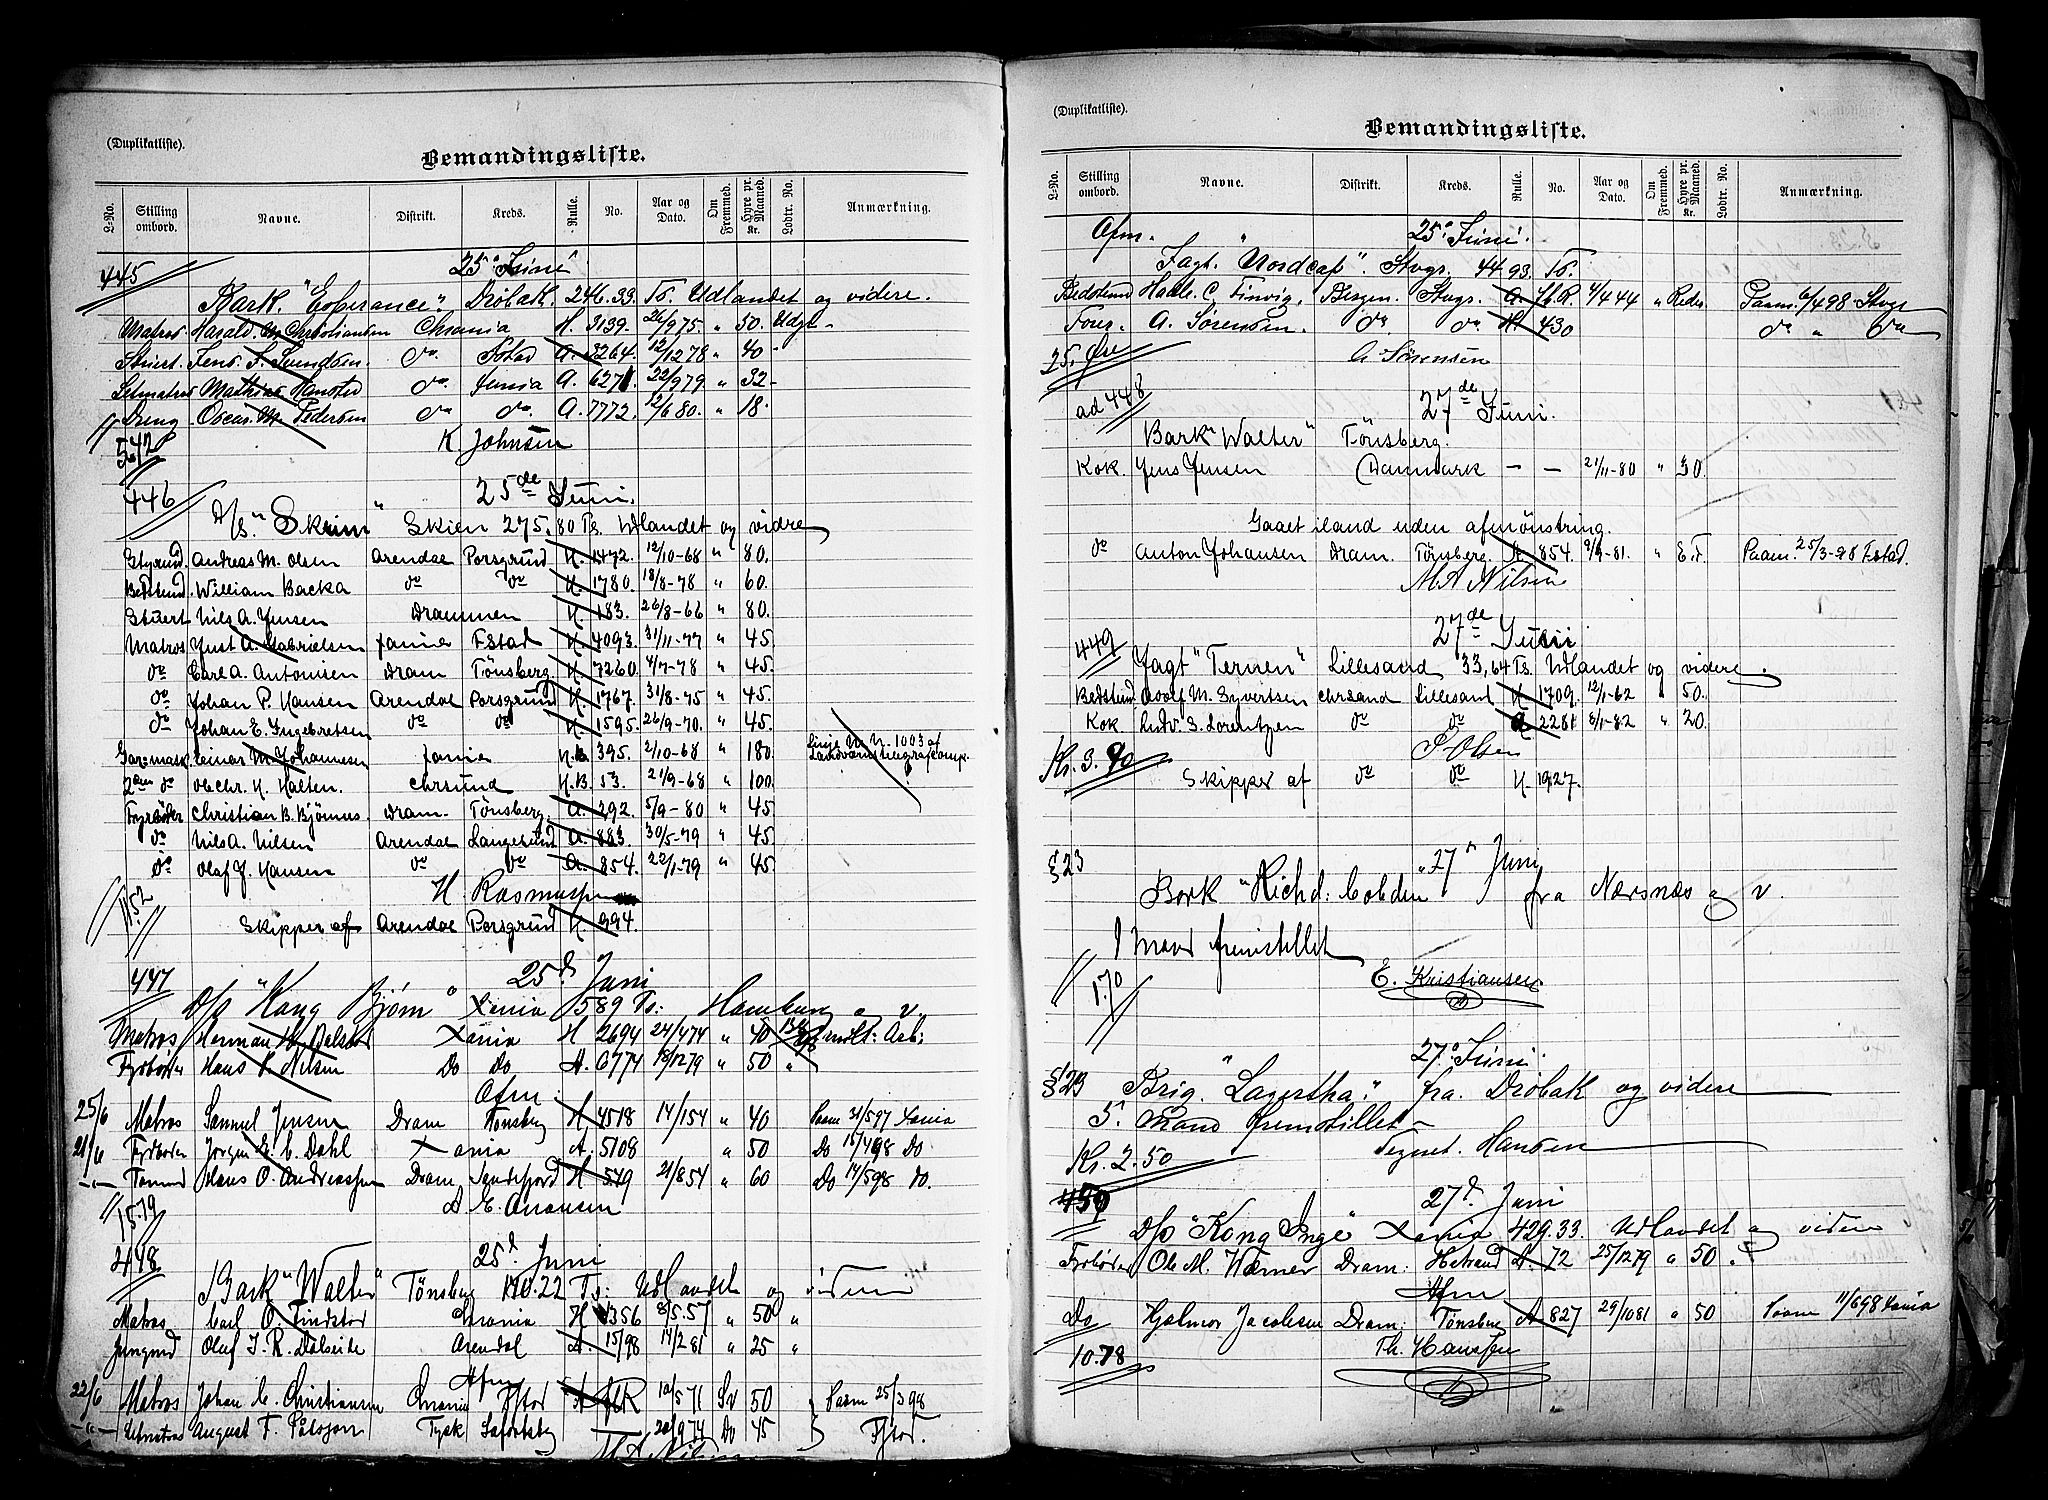 (Duplikatliste).
Bemandingsliste.
L-No. Stilling ombord. Navne. Distrikt. Kreds. Rulle. No. Aar og Dato. Om Fremmed. Hyre pr. Maaned. Kr. Lodtr. No. Anmærkning.
445 25. Juni
Bark. "Esperance". Dröbak. 246.33. Ts. Udlandet og videre.
Matros Harald M. Christiansen Chrania H. 3139. 26/9 75. " 50. Udgt -
Stuert. Jens S. Svendsen. do. Fstad A. 3264. 12/12 78 " 40 -
Letmatros Mathias Hansted do. Xania A. 6271. 22/9 79 " 32 -
Dreng Oscar M. Pedersen do do. A. 7772. 12/6 80. " 18.
5.42 K. Johnsen
446 25de Juni.
D/s. "Skrim" Skien 275.80 Ts. Udlandet og vidre
Styrmd. Andreas M. Olsen Arendal Porsgrund H. 1472. 12/10-68 " 80.
Bedstmd. William Backa do do H. 1780. 18/8-78 " 60.
Stuert Nils A. Jensen Drammen H. 183. 26/8-66 " 80.
Matros Just A. Gabrielsen Xania Fstad H. 4093. 31/11-77 " 45.
do Carl A. Antonisen Dram Tönsberg. H. 7260. 4/7-78 " 45.
do Johan P. Hansen Arendal Porsgrund H. 1767. 31/8-75 " 45.
do Johan E. Ingebretsen do do H. 1595. 26/9-70. " 45.
Einar M. Johannesen Xania 395. 2/10-68 " 180. Linje No. 1003 af
2den do Ole Chr. H. Halten. Chrsund M.B. 53. 21/9-68 " 100.
Fyrböder Christian B. Björnes Dram. Tönsberg. A. 292. 5/9-80 " 45
do Nils A. Nilsen Arendal Langesund A. 883. 30/5-79 " 45
do Olaf J. Hansen do do A. 854. 22/1-79 " 45
11.52 H. Rasmussen
Skipper af Arendal Porsgrund H. 994.
447 25d Juni
D/s "Kong Bjørn" Xania 589 Ts: Hamburg og v.
Matros Herman H. Xania H 2694 24/4 74 " 40
Fyrböder Hans P. Nilsen do do A. 6774 18/12 79 " 50 "
Afm.
25/6 Matros Samuel Jensen Dram Tönsberg H 4518 14/1 54 " 40 Paam 31/5 97 Xania
21/6 Fyrböder Jörgen E. C. Dahl Xania A. 5108 " 50 Do 15/4 98 Do
-"- Tømmd Hans O. Andreassen Dram Sandefjord H 549 21/8 54 " 60 Do 14/5 98 do.
15.19 A. E. Aronsen
448 25d Juni
Bark "Walter" Tönsberg 1110.22 Ts: Udlandet og videre
Matros Carl O. Lindstöd Xrania H 1356 8/5.57 " 50 "
Jungmd Olaf T. R. Dalseide Arendal A. 15/98 14/2 81 " 25 "
Afm
22/6 Matros Johan C. Christiansen Chrania Fstad 10/5 71 Sv 50 Paam 25/3 98
-"- Letmatros August F. Pålsson Tysk 20/9 74 Do 45 Fstad.
M. A. Nilsen
(Duplikatliste).
Bemandingsliste.
L-No. Stilling ombord. Navne. Distrikt. Kreds. Rulle. No. Aar og Dato. Om Fremmed. Hyre pr. Maaned. Kr. Lodtr. No. Anmærkning.
Afm. 25. Juni.
Jagt. "Nordcap". Stvgr. 44.93. Ts.
Bedstmd Haale. C. Finvig, Bergen. Stvgr. A. Ib.R. 4/4 44 " Reder. Paam. 6/4 98 Stvgr
Forer. A. Sörensen. do do H. 430 do " do
25. Øre A. Sörensen
ad 448 27de Juni.
Bark "Walter" Tönsberg.
Kok. Jens Jensen Danmark - - 21/11-80 " 30.
Gaaet iland uden afmönstring.
do Anton Johansen Dram. Tönsberg. A 854. 9/9-81. " E.F. Paam. 25/3-98 Fstad.
M A Nilsen
27de Juni
449 Jagt "Ternen" Lillesand 33,64 Ts. Udlandet og vidre.
Bedstmd. Adolf M. Syvertsen Chrsand Lillesand H 1709. 12/1-62 " 50.
Kok Ludv. S. Lorentzen do do A 2281 8/1-82 " 20.
Kr. 3.90 P Olsen
Skipper af do do H. 1927.
§ 23 27d Juni
Bark "Richd: Cobden" fra Nærsnæs og v.
1 Mand fremstillet
1.70 E. Kristiansen
27. Juni.
§ 23 Brig. "Lagertha." fra. Dröbak og videre
5. Mand fremstillet -
Kr. 2.50 Tegnet. Hansen
450 27d Juni
D/s "Kong Inge" Xania 429.33. Udlandet og videre
Fyrböder Ole M. Werner Dram: Hstrand A. 72 25/12 79 " 50 .
Afm
Do Hjalmar Jacobsen Dram: Tönsberg A 827 29/10 81 " 50 Paam 11/6 98 Xania
10.78 Th. Hanssen